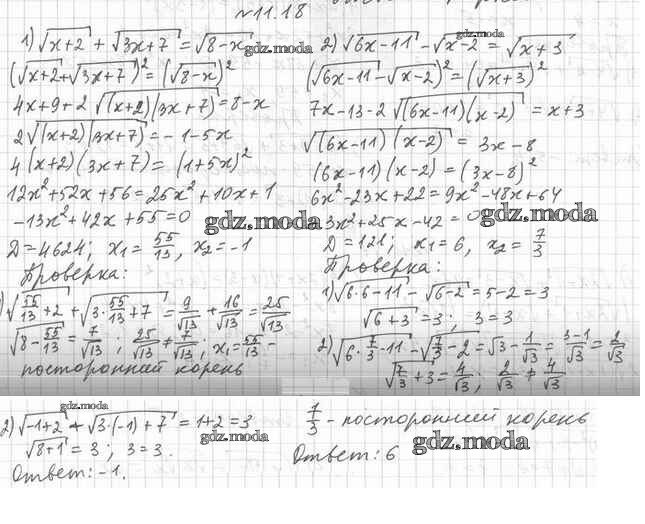 №11.18
1) √(x+2) + √(3x+7) = √(8-x)
(√(x+2)+√(3x+7))² = (√(8-x))²
4x+9+2√((x+2)(3x+7)) = 8-x
2√((x+2)(3x+7)) = -1-5x
4(x+2)(3x+7) = (1+5x)²
12x²+52x+56=25x²+10x+1
-13x²+42x+55=0
D=4624; x₁=55/13, x₂=-1
Проверка:
1) √(55/13+2) + √(3·55/13+7) = 9/√13 + 16/√13 = 25/√13
√(8-55/13) = 7/√13; 25/√13 ≠ 7/√13; x₁=55/13 -
посторонний корень
2) √(-1+2) + √(3·(-1)+7) = 1+2=3
√(8+1) = 3; 3=3.
Ответ: -1.
2) √(6x-11) - √(x-2) = √(x+3)
(√(6x-11) - √(x-2))² = (√(x+3))²
7x-13-2√((6x-11)(x-2)) = x+3
√((6x-11)(x-2)) = 3x-8
(6x-11)(x-2) = (3x-8)²
6x²-23x+22=9x²-48x+64
3x²+25x-42=0
D=121; x₁=6, x₂=7/3
Проверка:
1) √(6·6-11) - √(6-2) = 5-2=3
√(6+3) = 3; 3=3
2) √(6·7/3-11) - √(7/3-2) = √3 - 1/√3 = (3-1)/√3 = 2/√3
√(7/3+3) = 4/√3; 2/√3 ≠ 4/√3
7/3 - посторонний корень
Ответ: 6
gdz.moda
gdz.moda
gdz.moda
gdz.moda
gdz.moda
gdz.moda
gdz.moda